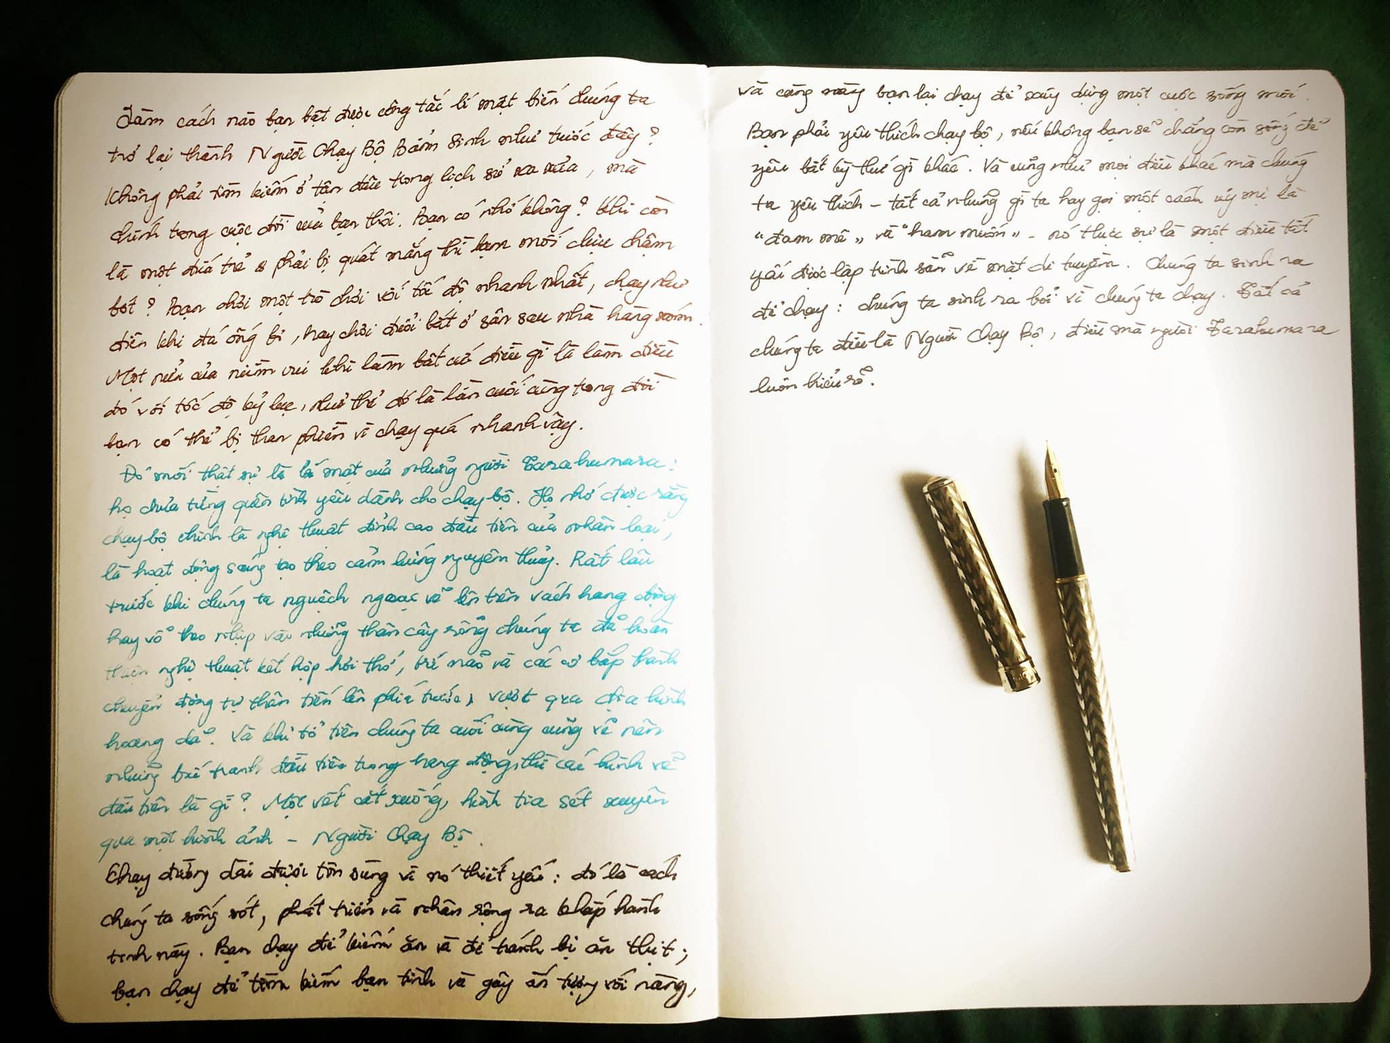 Làm cách nào bạn bật được công tắc bí mật biến chúng ta
trở lại thành Người Chạy Bộ Bẩm Sinh như trước đây?
Không phải tìm kiếm ở tận đâu trong lịch sử xa xưa, mà
chính trong cuộc đời của bạn thôi. Bạn có nhớ không? Khi còn
là một đứa trẻ phải bị quát mắng thì bạn mới chịu chậm
bớt? Bạn chơi một trò chơi với tốc độ nhanh nhất, chạy như
điên khi đá ống bi, hay chơi đuổi bắt ở sân sau nhà hàng xóm.
Một nửa của niềm vui khi làm bất cứ điều gì là làm điều
đó với tốc độ kỷ lục, như thể đó là lần cuối cùng trong đời
bạn có thể bị than phiền vì chạy quá nhanh vậy.
Đó mới thật sự là bí mật của những người Tarahumara:
họ chưa từng quên tình yêu dành cho chạy bộ. Họ nhớ được rằng
chạy bộ chính là nghệ thuật đỉnh cao đầu tiên của nhân loại,
là hoạt động sáng tạo theo cảm hứng nguyên thủy. Rất lâu
trước khi chúng ta nguệch ngoạc vẽ lên trên vách hang động
hay vỗ theo nhịp vào những thân cây rỗng chúng ta đã hoàn
thiện nghệ thuật kết hợp hơi thở, trí não và các cơ bắp thành
chuyển động tự thân tiến lên phía trước, vượt qua địa hình
hoang dã. Và khi tổ tiên chúng ta cuối cùng cũng vẽ nên
những bức tranh đầu tiên trong hang động, thì các hình vẽ
đầu tiên là gì? Một vết cắt xuống, hình tia sét xuyên
qua một hình ảnh - Người Chạy Bộ.
Chạy đường dài được tôn sùng vì nó thiết yếu: đó là cách
chúng ta sống sót, phát triển và nhân rộng ra khắp hành
tinh này. Bạn chạy để kiếm ăn và để tránh bị ăn thịt;
bạn chạy để tìm kiếm bạn tình và gây ấn tượng với nàng,
và cô nàng bạn lại chạy để xây dựng một cuộc sống mới.
Bạn phải yêu thích chạy bộ, nếu không bạn sẽ chẳng còn sống để
yêu bất kỳ thứ gì khác. Và cũng như mọi điều khác mà chúng
ta yêu thích - tất cả những gì ta hay gọi một cách ủy mị là
"đam mê" và "ham muốn" - nó thực sự là một điều tất
yếu được lập trình sẵn về mặt di truyền. Chúng ta sinh ra
để chạy: chúng ta sinh ra bởi vì chúng ta chạy. Tất cả
chúng ta đều là Người Chạy Bộ, điều mà người Tarahumara
luôn hiểu rõ.